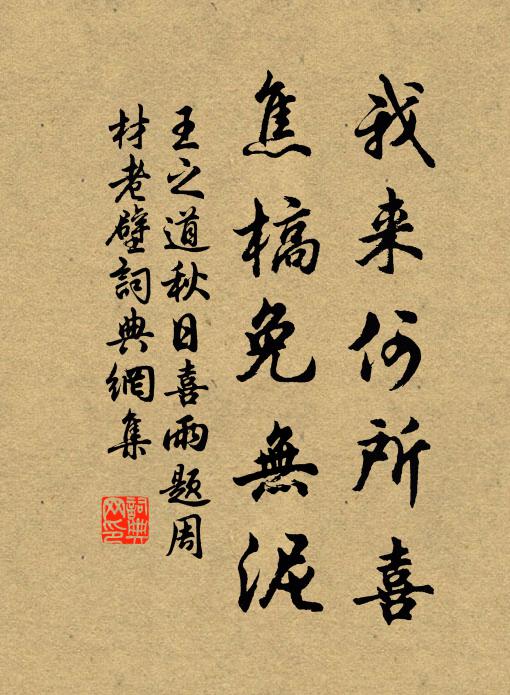 我来何所喜
焦槁免無泥
王之道秋日喜雨题周
材老壁詞典網集
詞典网印